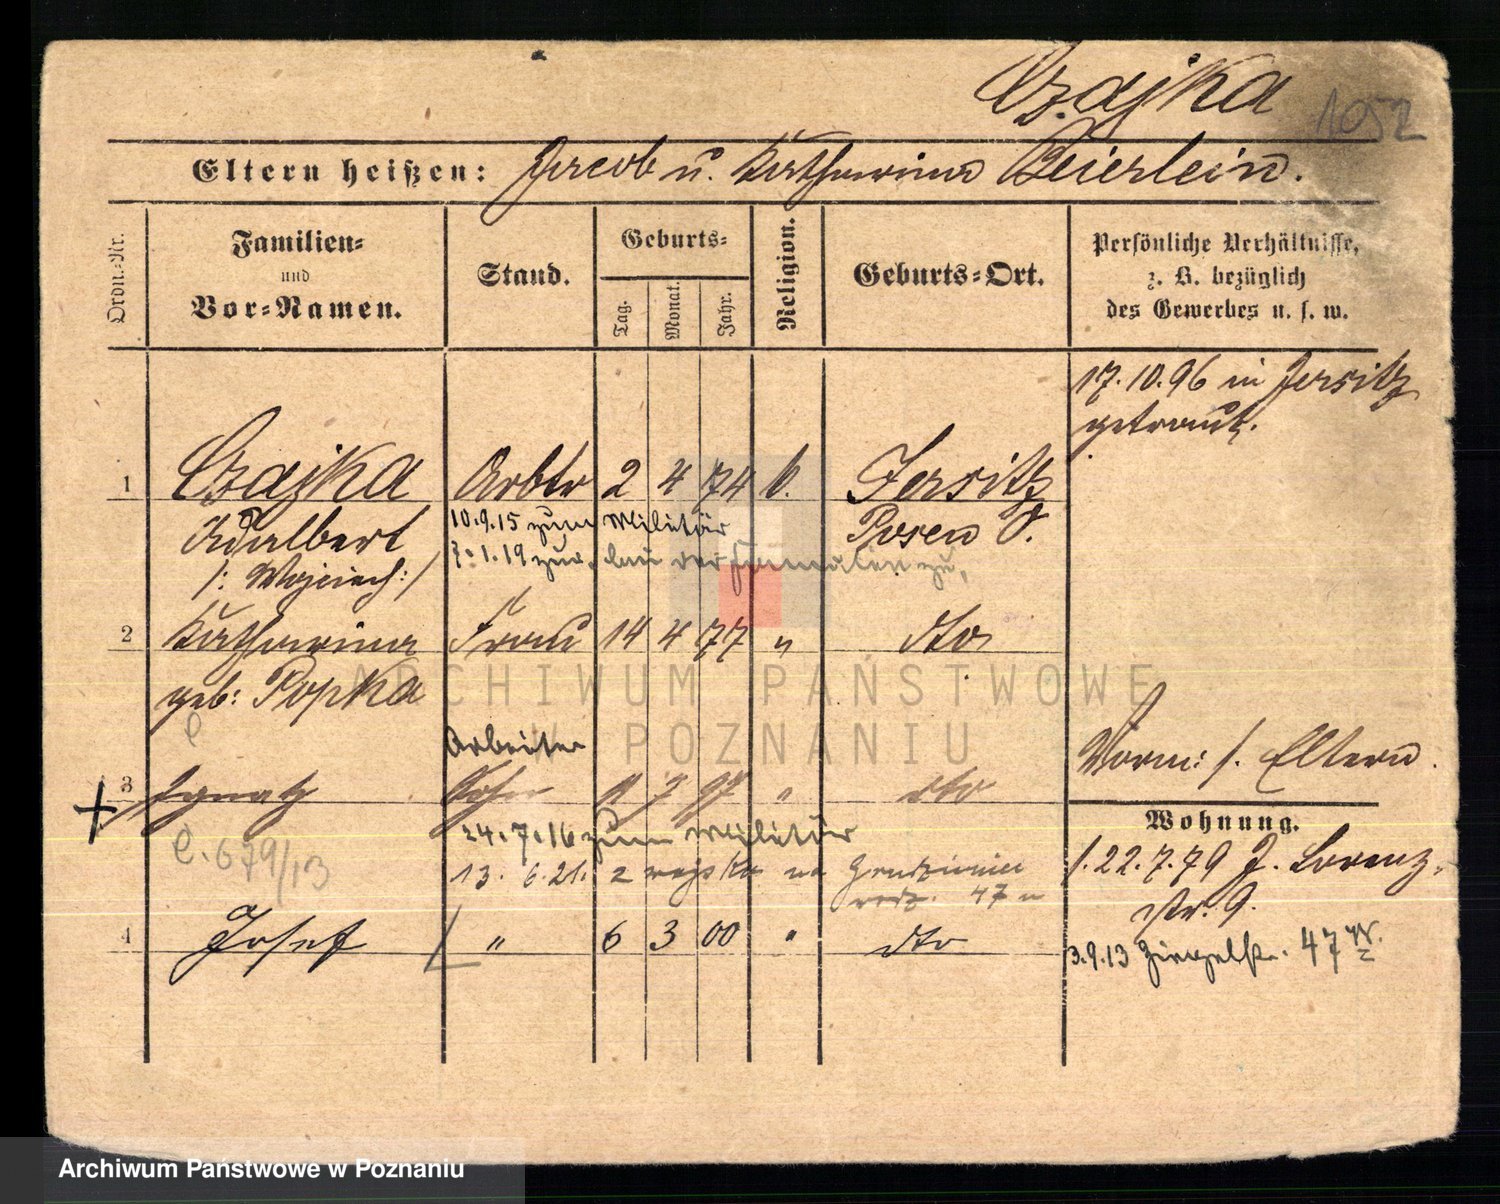 Czajka 1052
Eltern heißen: Jacob u. Katharina Beierlein.
Ordn.-Nr.
Familien-
und
Vor-Namen.
Stand.
Geburts-
Tag.
Monat.
Jahr.
Religion.
Geburts-Ort.
Persönliche Verhältnisse,
z. B. bezüglich
des Gewerbes u. s. w.
17.10.96 in Jersitz
getraut.
1 Czajka Arbtr 2 4 74 k. Jersitz
Adalbert 10.9.15 zum Militär Posen O.
/: Wojciech :/ 7.1.19 zur.
2 Katharina Frau 14 4 77 " dto
geb: Popka
e
Arbeiter
Vorm: s. Eltern.
3 Ignatz Sohn 11 7 97 " dto
24.7.16 zum Militär
e. 679/13
13. 6.21. 47
4 Josef " 6 3 00 " dto
Wohnung.
1.22.7.79 J. Lorenz-
str. 9.
3.9.13 Ziegelstr. 47
ARCHIWUM PAŃSTWOWE
W POZNANIU
Archiwum Państwowe w Poznaniu